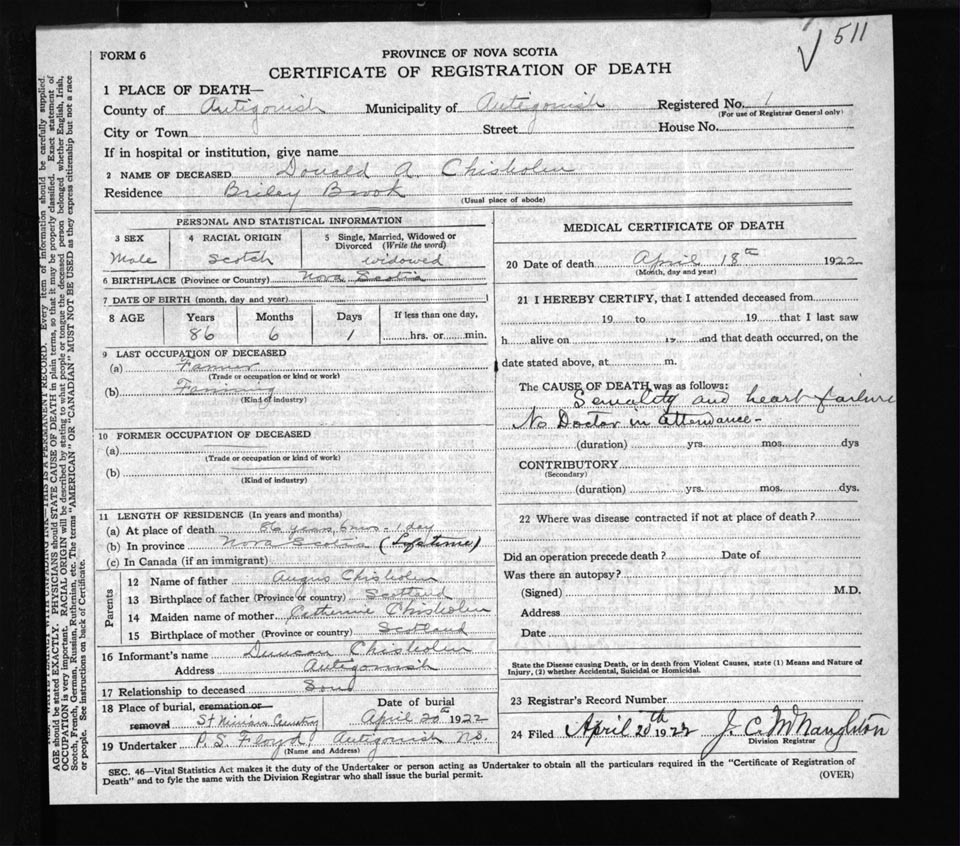 511
FORM 6
PROVINCE OF NOVA SCOTIA
CERTIFICATE OF REGISTRATION OF DEATH
1 PLACE OF DEATH—
County of Antigonish Municipality of Antigonish Registered No. 1
(For use of Registrar General only)
City or Town Street House No.
If in hospital or institution, give name
2 NAME OF DECEASED Donald A. Chisholm
Residence Briley Brook
(Usual place of abode)
PERSONAL AND STATISTICAL INFORMATION
3 SEX 4 RACIAL ORIGIN 5 Single, Married, Widowed or Divorced (Write the word)
Male Scotch widowed
6 BIRTHPLACE (Province or Country) Nova Scotia
7 DATE OF BIRTH (month, day and year)
8 AGE Years Months Days If less than one day,
86 6 1 hrs. or min.
9 LAST OCCUPATION OF DECEASED
(a) Farmer
(Trade or occupation or kind or work)
(b) Farming
(Kind of industry)
10 FORMER OCCUPATION OF DECEASED
(a)
(Trade or occupation or kind of work)
(b)
(Kind of industry)
11 LENGTH OF RESIDENCE (In years and months)
(a) At place of death 86 years, 6 mos. 1 day
(b) In province Nova Scotia (Lifetime)
(c) In Canada (if an immigrant)
Parents
12 Name of father Angus Chisholm
13 Birthplace of father (Province or country) Scotland
14 Maiden name of mother Catherine Chisholm
15 Birthplace of mother (Province or country) Scotland
16 Informant's name Duncan Chisholm
Address Antigonish
17 Relationship to deceased Son
18 Place of burial, cremation or Date of burial
removal St Ninians Cemetry April 20th 1922
19 Undertaker P. S. Floyd, Antigonish N.S.
(Name and Address)
MEDICAL CERTIFICATE OF DEATH
20 Date of death April 18th 1922
(Month, day and year)
21 I HEREBY CERTIFY, that I attended deceased from
19 to 19 that I last saw
h alive on 19 and that death occurred, on the
date stated above, at m.
The CAUSE OF DEATH was as follows:
Senality and heart failure
No Doctor in attendance -
(duration) yrs. mos. dys
CONTRIBUTORY
(Secondary)
(duration) yrs. mos. dys.
22 Where was disease contracted if not at place of death?
Did an operation precede death? Date of
Was there an autopsy?
(Signed) M.D.
Address
Date
State the Disease causing Death, or in death from Violent Causes, state (1) Means and Nature of
Injury, (2) whether Accidental, Suicidal or Homicidal.
23 Registrar's Record Number
24 Filed April 20th 1922 J. C. McNaughton
Division Registrar
SEC. 46—Vital Statistics Act makes it the duty of the Undertaker or person acting as Undertaker to obtain all the particulars required in the "Certificate of Registration of
Death" and to fyle the same with the Division Registrar who shall issue the burial permit.
(OVER)
THIS IS A PERMANENT RECORD. Every item of information should be carefully supplied.
AGE should be stated EXACTLY. PHYSICIANS should STATE CAUSE OF DEATH in plain terms, so that it may be properly classified. Exact statement of
OCCUPATION is very important. RACIAL ORIGIN will be described by stating to what people or tongue the deceased person belonged whether English, Irish,
Scotch, French, German, Russian, Ruthenian, etc. The terms "AMERICAN" OR "CANADIAN" MUST NOT BE USED as they express citizenship but not a race
or people. See instructions on back of Certificate.